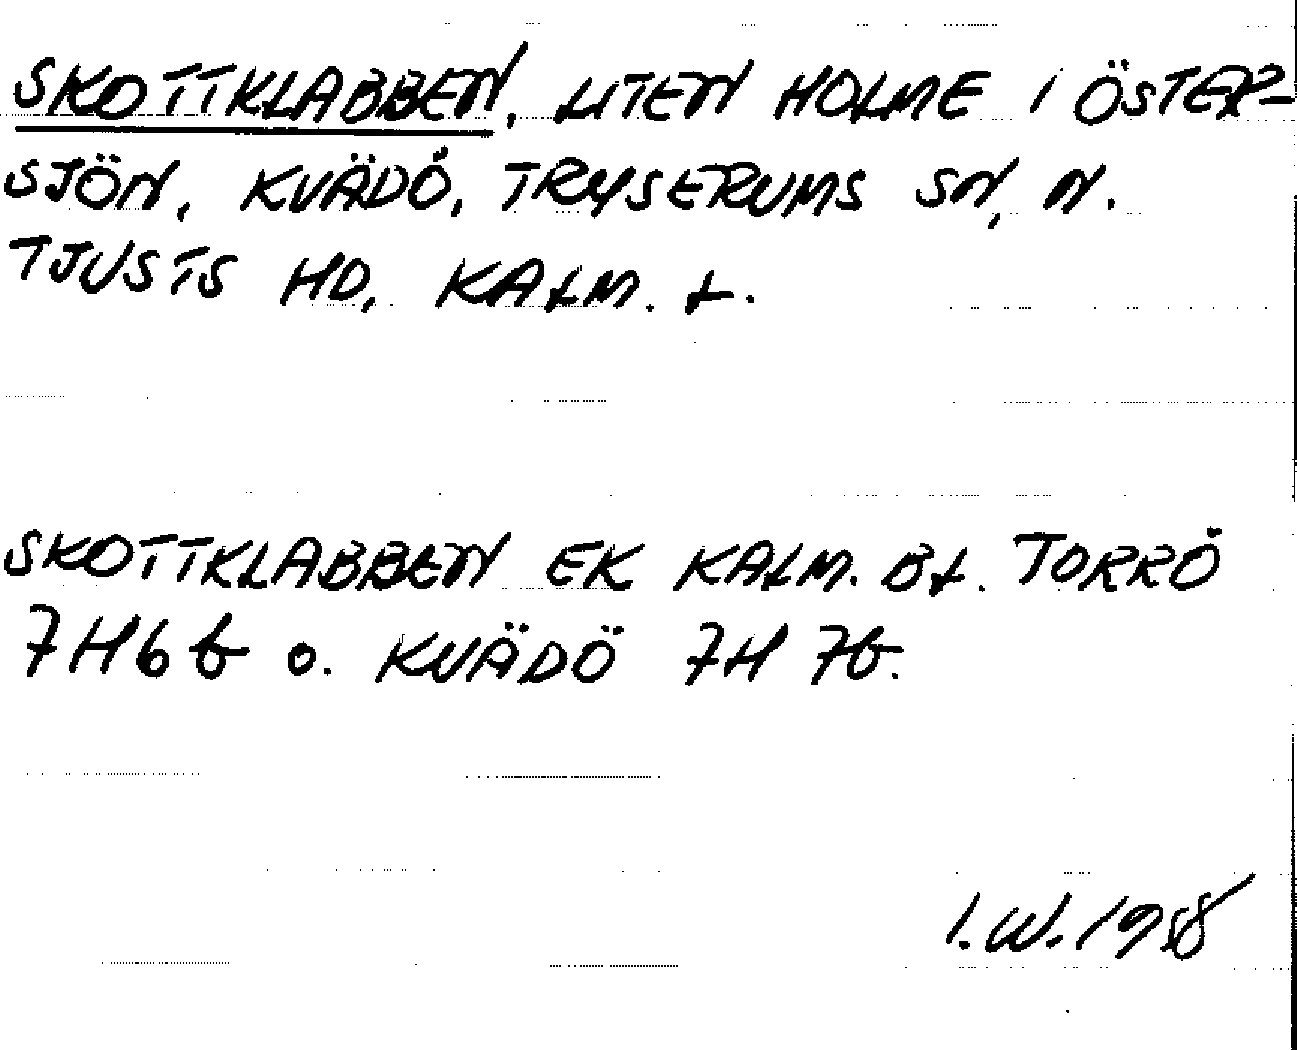 SKOTTKLABBEN, LITEN HOLME I ÖSTER-
SJÖN, KVÄDÖ, TRYSERUMS SN, N.
TJUSTS HD, KALM. L.
SKOTTKLABBEN EK KALM. BL. TORRÖ
7H6b o. KVÄDÖ 7H 7b.
I.W.